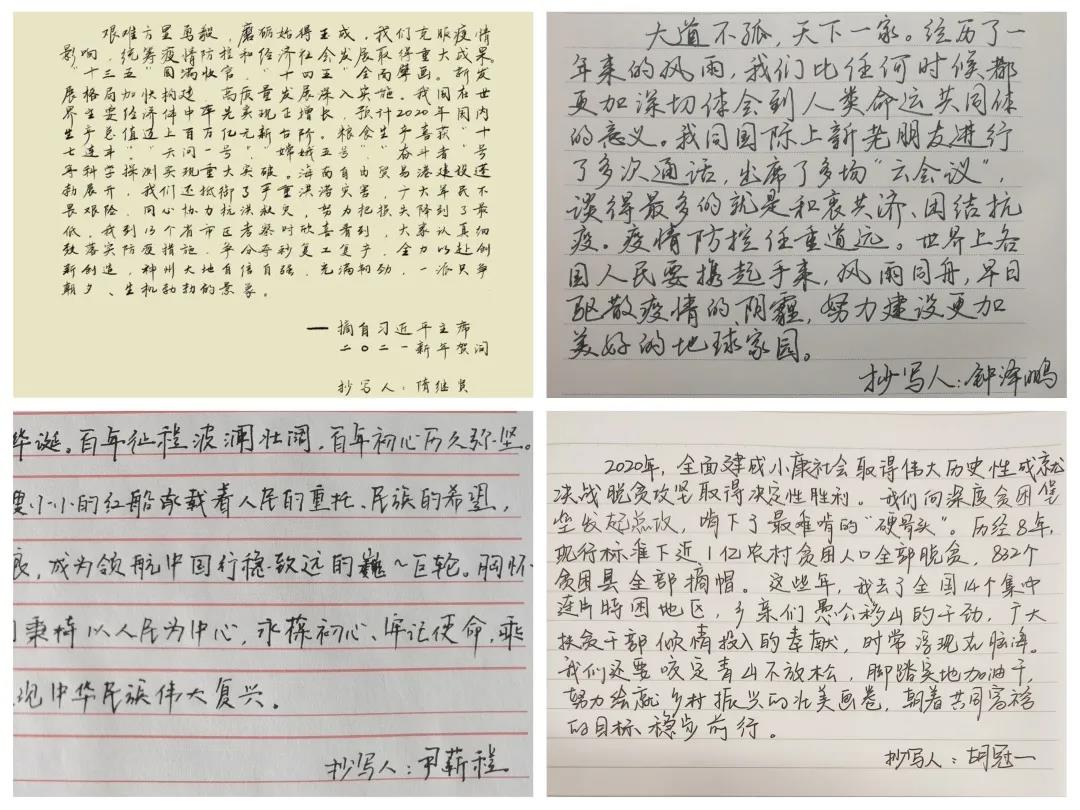 艰难方显勇毅，磨砺始得玉成，我们克服疫情
影响，统筹疫情防控和经济社会发展取得重大成果。
"十三五"圆满收官，"十四五"全面擘画。新发
展格局加快构建，高质量发展深入实施。我国在世
界主要经济体中率先实现正增长，预计2020年国内
生产总值迈上百万亿元新台阶。粮食生产喜获"十
七连丰"。"天问一号"、"嫦娥五号"、"奋斗者"号
等科学探测实现重大突破。海南自由贸易港建设蓬
勃展开，我们还抵御了严重洪涝灾害，广大军民不
畏艰险，同心协力抗洪救灾，努力把损失降到了最
低。我到13个省市区考察时欣喜看到，大家认真细
致落实防疫措施，争分夺秒复工复产，全力以赴创
新创造，神州大地自信自强，充满韧劲，一派只争
朝夕、生机勃勃的景象。
一摘自习近平主席
二〇二一新年贺词
抄写人：隋继
大道不孤，天下一家。经历了一
年来的风雨，我们比任何时候都
更加深切体会到人类命运共同体
的意义。我同国际上新老朋友进行
了多次通话，出席了多场"云会议"，
谈得最多的就是和衷共济、团结抗
疫。疫情防控任重道远。世界上各
国人民要携起手来，风雨同舟，早日
驱散疫情的阴霾，努力建设更加
美好的地球家园。
抄写人：钟泽鹏
华诞。百年征程波澜壮阔，百年初心历久弥坚。
小小的红船承载着人民的重托、民族的希望，
成为领航中国行稳致远的巍巍巨轮。胸怀
秉持以人民为中心，永葆初心、牢记使命，乘
现中华民族伟大复兴。
抄写人：尹薪程
2020年，全面建成小康社会取得伟大历史性成就
决战脱贫攻坚取得决定性胜利。我们向深度贫困堡
垒发起总攻，啃下了最难啃的"硬骨头"。历经8年，
现行标准下近1亿农村贫困人口全部脱贫，832个
贫困县全部摘帽。这些年，我去了全国14个集中
连片特困地区，乡亲们愚公移山的干劲，广大
扶贫干部倾情投入的奉献，时常浮现在脑海。
我们还要咬定青山不放松，脚踏实地加油干，
努力绘就乡村振兴的壮美画卷，朝着共同富裕
的目标稳步前行。
抄写人：胡冠一